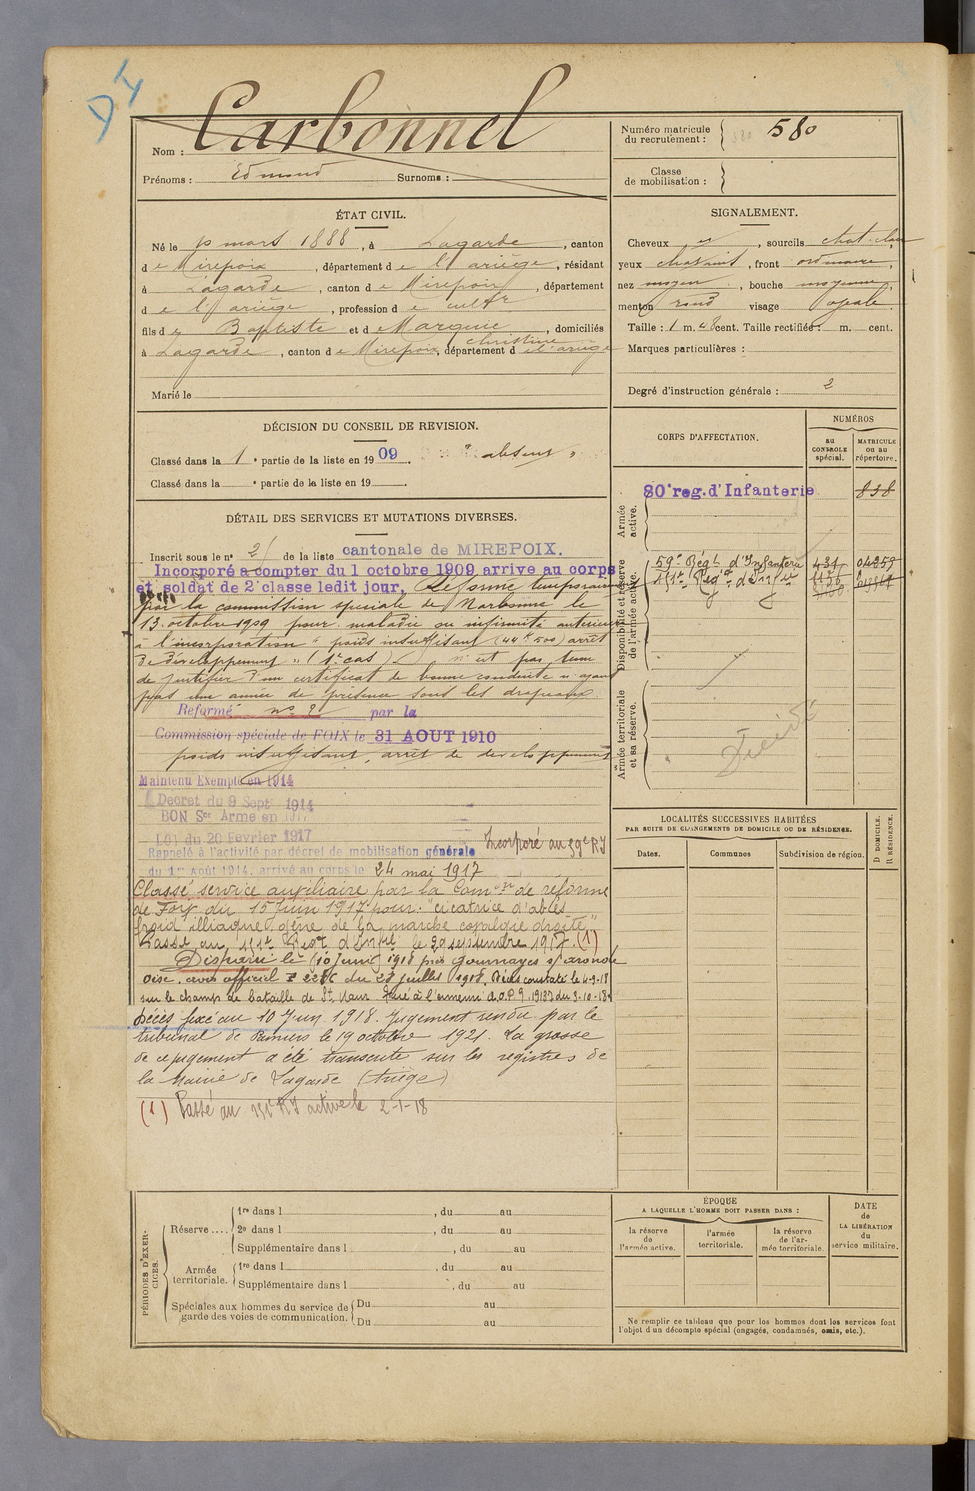 Carbonnel
Nom :
Prénoms : Edmond Surnoms :
Numéro matricule du recrutement : 580
Classe de mobilisation :
ÉTAT CIVIL.
Né le mars 1888, à Lagarde, canton
de Mirepoix, département de l'ariège, résidant
à Lagarde, canton de Mirepoix, département
de l'ariège, profession de cultr
fils de Baptiste et de Marquié, domiciliés
Christine
à Lagarde, canton de Mirepoix, département de l'ariège
Marié le
SIGNALEMENT.
Cheveux , sourcils chat. clair
yeux , front ordinaire,
nez moyen, bouche moyenne,
menton rond visage ovale.
Taille : 1 m. cent. Taille rectifiée : m. cent.
Marques particulières :
Degré d'instruction générale : 2
DÉCISION DU CONSEIL DE REVISION.
Classé dans la 1e partie de la liste en 1909. "absent"
Classé dans la e partie de la liste en 19
CORPS D'AFFECTATION.
NUMÉROS
au CONTROLE spécial.
MATRICULE ou au répertoire.
Armée active.
80e reg. d'Infanterie 838
Disponibilité et réserve de l'armée active.
59e Régt d'Infanterie 434
Armée territoriale et sa réserve.
Décédé
DÉTAIL DES SERVICES ET MUTATIONS DIVERSES.
Inscrit sous le n° 21 de la liste cantonale de MIREPOIX.
Incorporé à compter du 1 octobre 1909 arrive au corps
et soldat de 2e classe ledit jour, Réformé temporairement
par la commission spéciale de Narbonne le
13 octobre 1909 pour maladie ou infirmité antérieure
à l'incorporation "poids insuffisant (44k 500) arrêt
de développement" (1er cas) n'est pas tenu
de justifier d'un certificat de bonne conduite n'ayant
pas une année de présence sous les drapeaux
Reformé n° 2 par la
Commission spéciale de FOIX le 31 AOUT 1910
poids insuffisant, arrêt de développement
Maintenu Exempté en 1914
Decret du 9 Sept 1914
BON Sce Armé en 1917
Loi du 20 Fevrier 1917 Incorporé au 59e RI
Rappelé à l'activité par décret de mobilisation générale
du 1er Août 1914, arrivé au corps le 24 mai 1917
Classé service auxiliaire par la Comon de réforme
de Foix du 15 Juin 1917 pour: "cicatrice d'abcès
froid illiaque, gêne de la marche coxalgie droite"
Passé au 151e Régt d'Infie le 29 septembre 1917. (1)
Disparu le (10 Juin) 1918 près Gournayes s/ aronde
Oise, avis officiel du 23 juillet 1918. Décès constaté le 4-9-18
sur le champ de bataille de St Maur Tué à l'ennemi a.o.P.9. du 3-10-18
Décès fixé au 10 Juin 1918. Jugement rendu par le
tribunal de Pamiers le 19 octobre 1921. La grosse
de ce jugement a été transcrite sur les registres de
la Mairie de Lagarde (Ariège)
(1) Passé au RI active le 2-1-18
LOCALITÉS SUCCESSIVES HABITÉES
PAR SUITE DE CHANGEMENTS DE DOMICILE OU DE RÉSIDENCE.
Dates. Communes Subdivision de région.
D DOMICILE. R RÉSIDENCE.
PÉRIODES D'EXERCICES.
Réserve ....
1re dans l , du au
2e dans l , du au
Supplémentaire dans l , du au
Armée territoriale.
1re dans l , du au
Supplémentaire dans l , du au
Spéciales aux hommes du service de garde des voies de communication.
Du au
Du au
ÉPOQUE
A LAQUELLE L'HOMME DOIT PASSER DANS :
la réserve de l'armée active.
l'armée territoriale.
la réserve de l'armée territoriale.
DATE de LA LIBÉRATION du service militaire.
Ne remplir ce tableau que pour les hommes dont les services font
l'objet d'un décompte spécial (engagés, condamnés, omis, etc.).